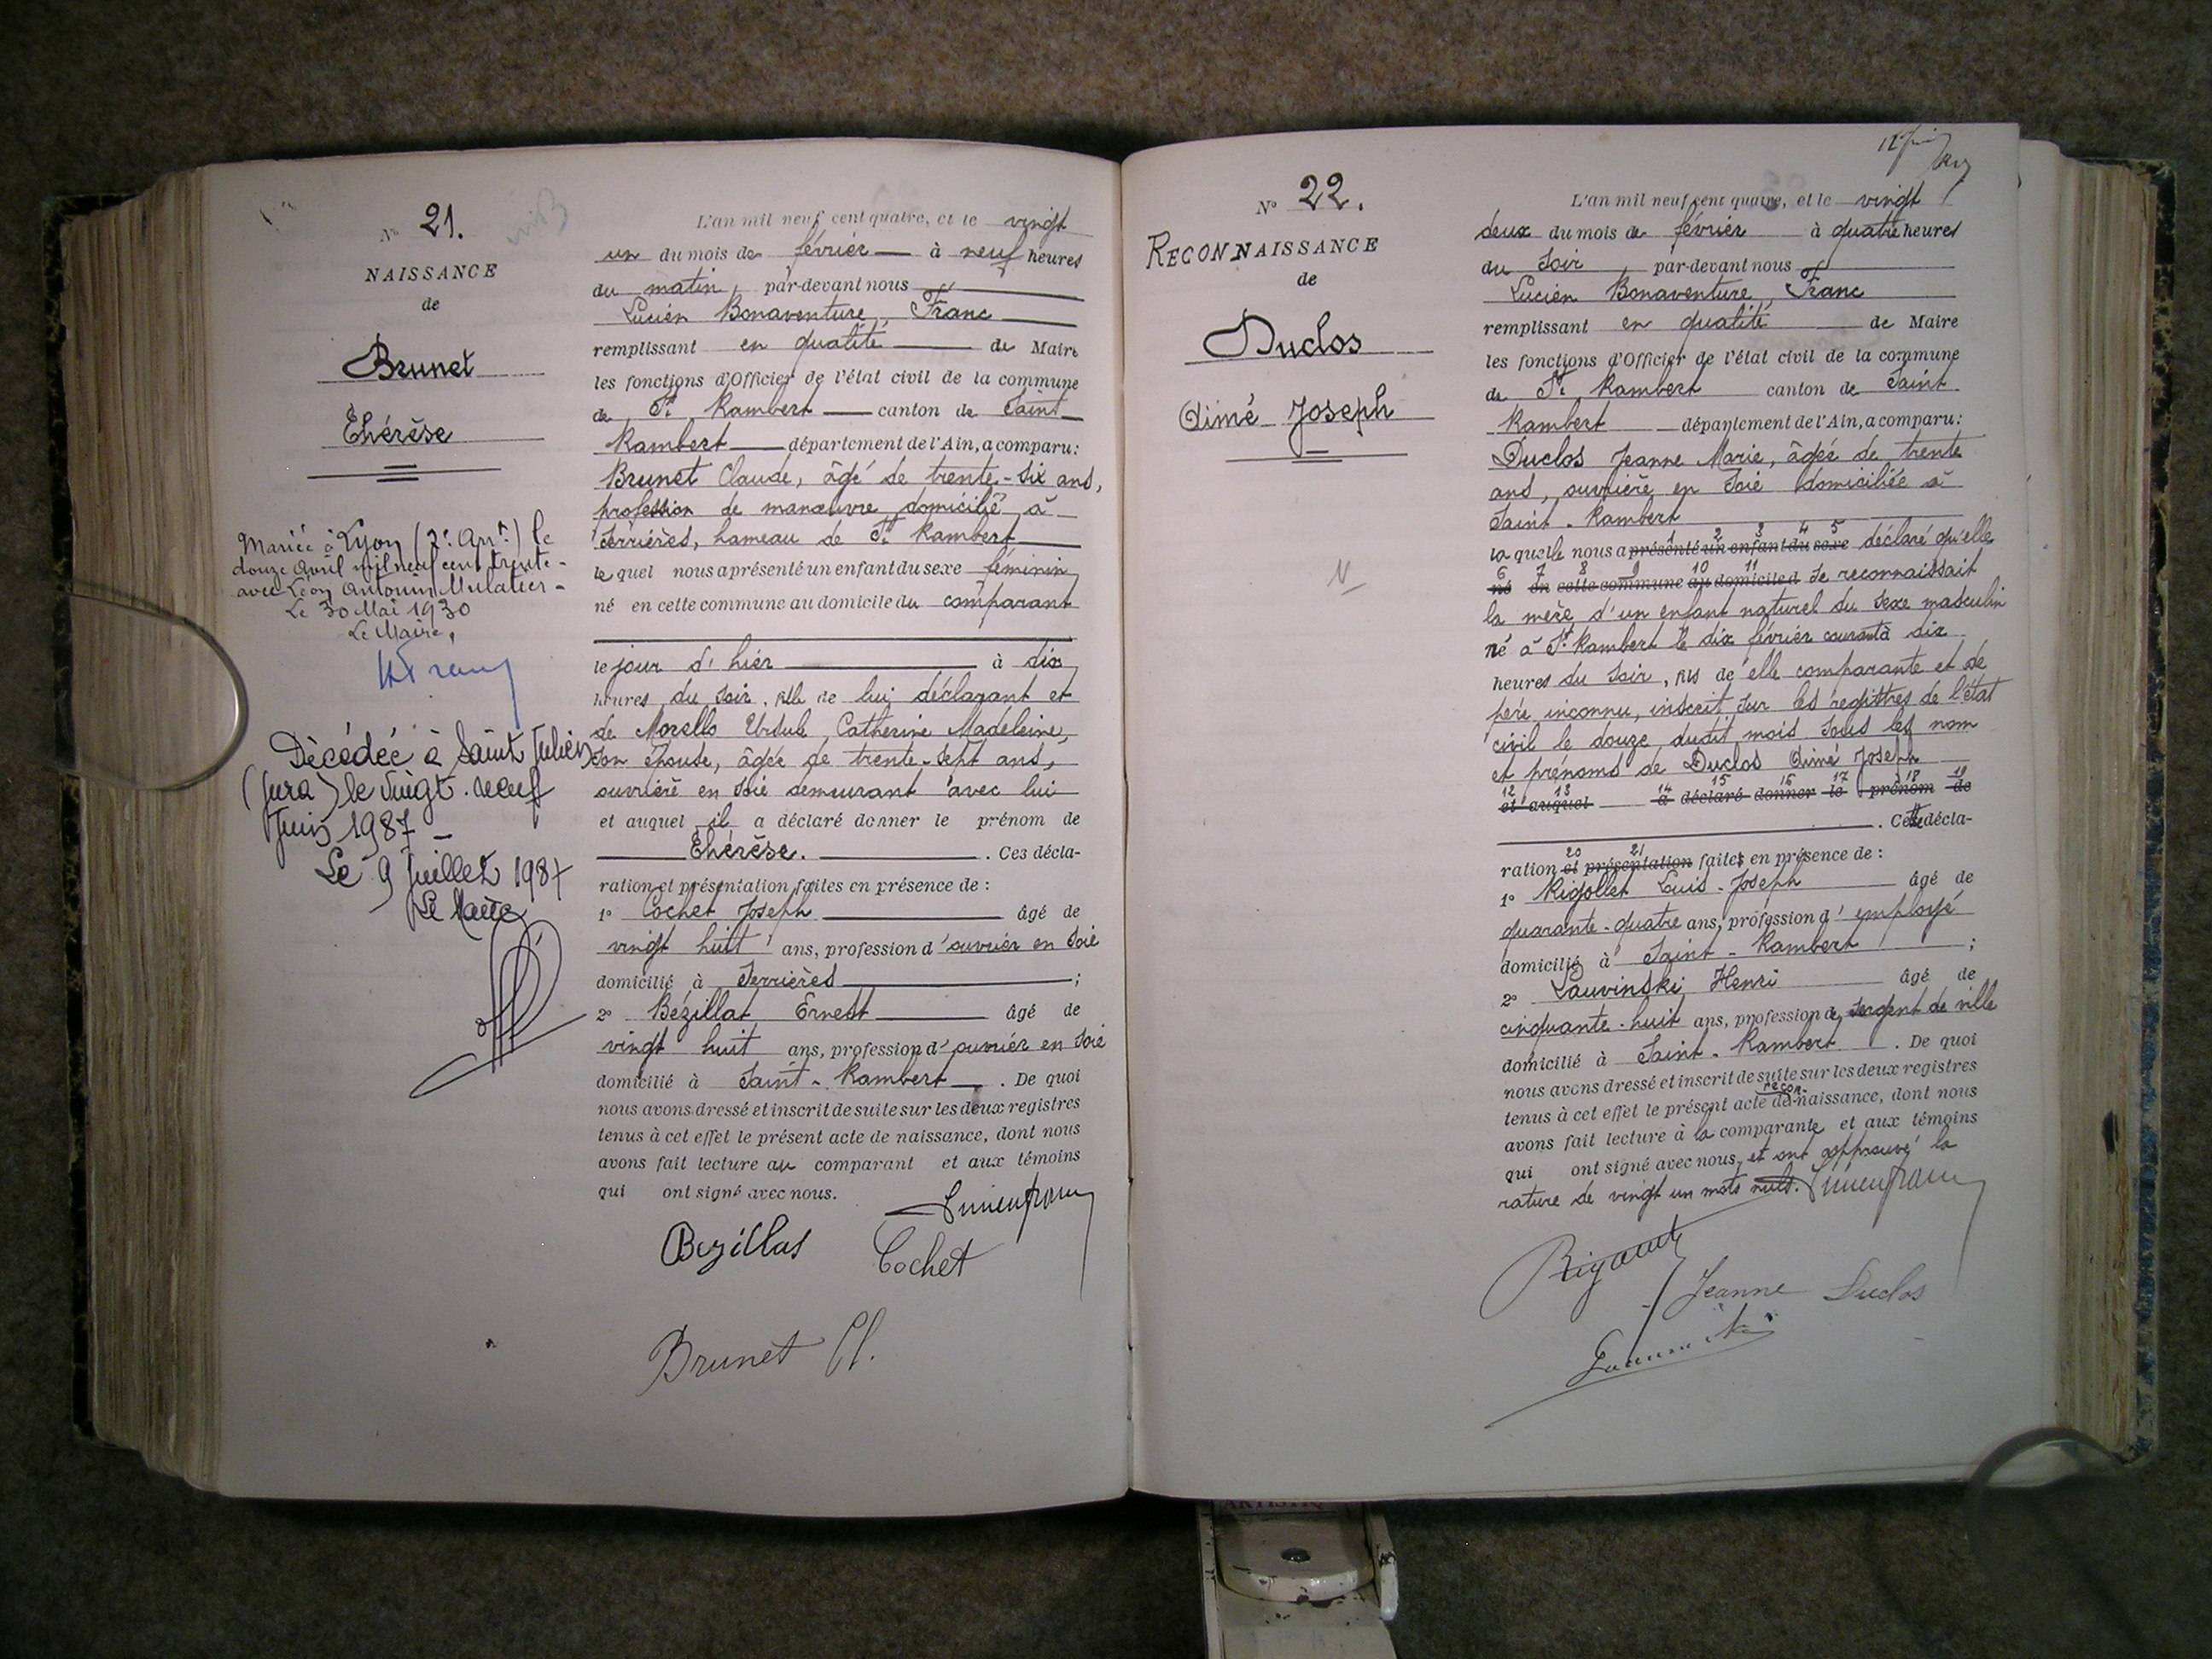 N° 21.
NAISSANCE
de
Brunet
Thérèse
Mariée à Lyon (2e Arrt) le
douze Avril mil neuf cent trente
avec Léon Antonin Mulatier
Le 30 Mai 1930
Le Maire,
Décédée à Saint Julien
(Jura) le vingt-neuf
Juin 1987
Le 9 Juillet 1987
Le Maire
L'an mil neuf cent quatre, et le vingt
un du mois de février à neuf heures
du matin, par-devant nous
Lucien Bonaventure Franc
remplissant en qualité de Maire
les fonctions d'Officier de l'état civil de la commune
de St Rambert canton de Saint
Rambert département de l'Ain, a comparu:
Brunet Claude, âgé de trente-six ans,
profession de manœuvre domicilié à
Serrières, hameau de St Rambert
le quel nous a présenté un enfant du sexe féminin
né en cette commune au domicile du comparant
le jour d'hier à dix
heures du soir, fille de lui déclarant et
de Morello Ursule Catherine Madeleine,
son épouse, âgée de trente-sept ans,
ouvrière en soie demeurant avec lui
et auquel il a déclaré donner le prénom de
Thérèse. Ces décla-
ration et présentation faites en présence de :
1° Cochet Joseph âgé de
vingt huit ans, profession d'ouvrier en soie
domicilié à Serrières ;
2° Bézillat Ernest âgé de
vingt huit ans, profession d'ouvrier en soie
domicilié à Saint-Rambert. De quoi
nous avons dressé et inscrit de suite sur les deux registres
tenus à cet effet le présent acte de naissance, dont nous
avons fait lecture au comparant et aux témoins
qui ont signé avec nous.
Bezillas Cochet
Brunet Cl.
N° 22.
RECONNAISSANCE
de
Duclos
Aimé Joseph
L'an mil neuf cent quatre, et le vingt
deux du mois de février à quatre heures
du soir par-devant nous
Lucien Bonaventure Franc
remplissant en qualité de Maire
les fonctions d'Officier de l'état civil de la commune
de St Rambert canton de Saint
Rambert département de l'Ain, a comparu:
Duclos Jeanne Marie, âgée de trente
ans, ouvrière en soie domiciliée à
Saint-Rambert
1 2 3 4 5
la quelle nous a présenté un enfant du sexe déclaré qu'elle
6 7 8 9 10 11
né en cette commune au domicile d se reconnaissait
la mère d'un enfant naturel du sexe masculin
né à St Rambert le dix février courant à dix
heures du soir, fils de elle comparante et de
père inconnu, inscrit sur les registres de l'état
civil le douze dudit mois sous les nom
et prénoms de Duclos Aimé Joseph
12 13 14 15 16 17 18 19
et auquel a déclaré donner le prénom de
. Cette décla-
20 21
ration et présentation faites en présence de :
1° Rigollet Louis-Joseph âgé de
quarante-quatre ans, profession d'employé
domicilié à Saint-Rambert ;
2° Lauvinski Henri âgé de
cinquante-huit ans, profession de sergent de ville
domicilié à Saint-Rambert. De quoi
nous avons dressé et inscrit de suite sur les deux registres
recon-
tenus à cet effet le présent acte de naissance, dont nous
avons fait lecture à la comparante et aux témoins
qui ont signé avec nous, et ont approuvé la
rature de vingt un mots nuls.
Jeanne Duclos